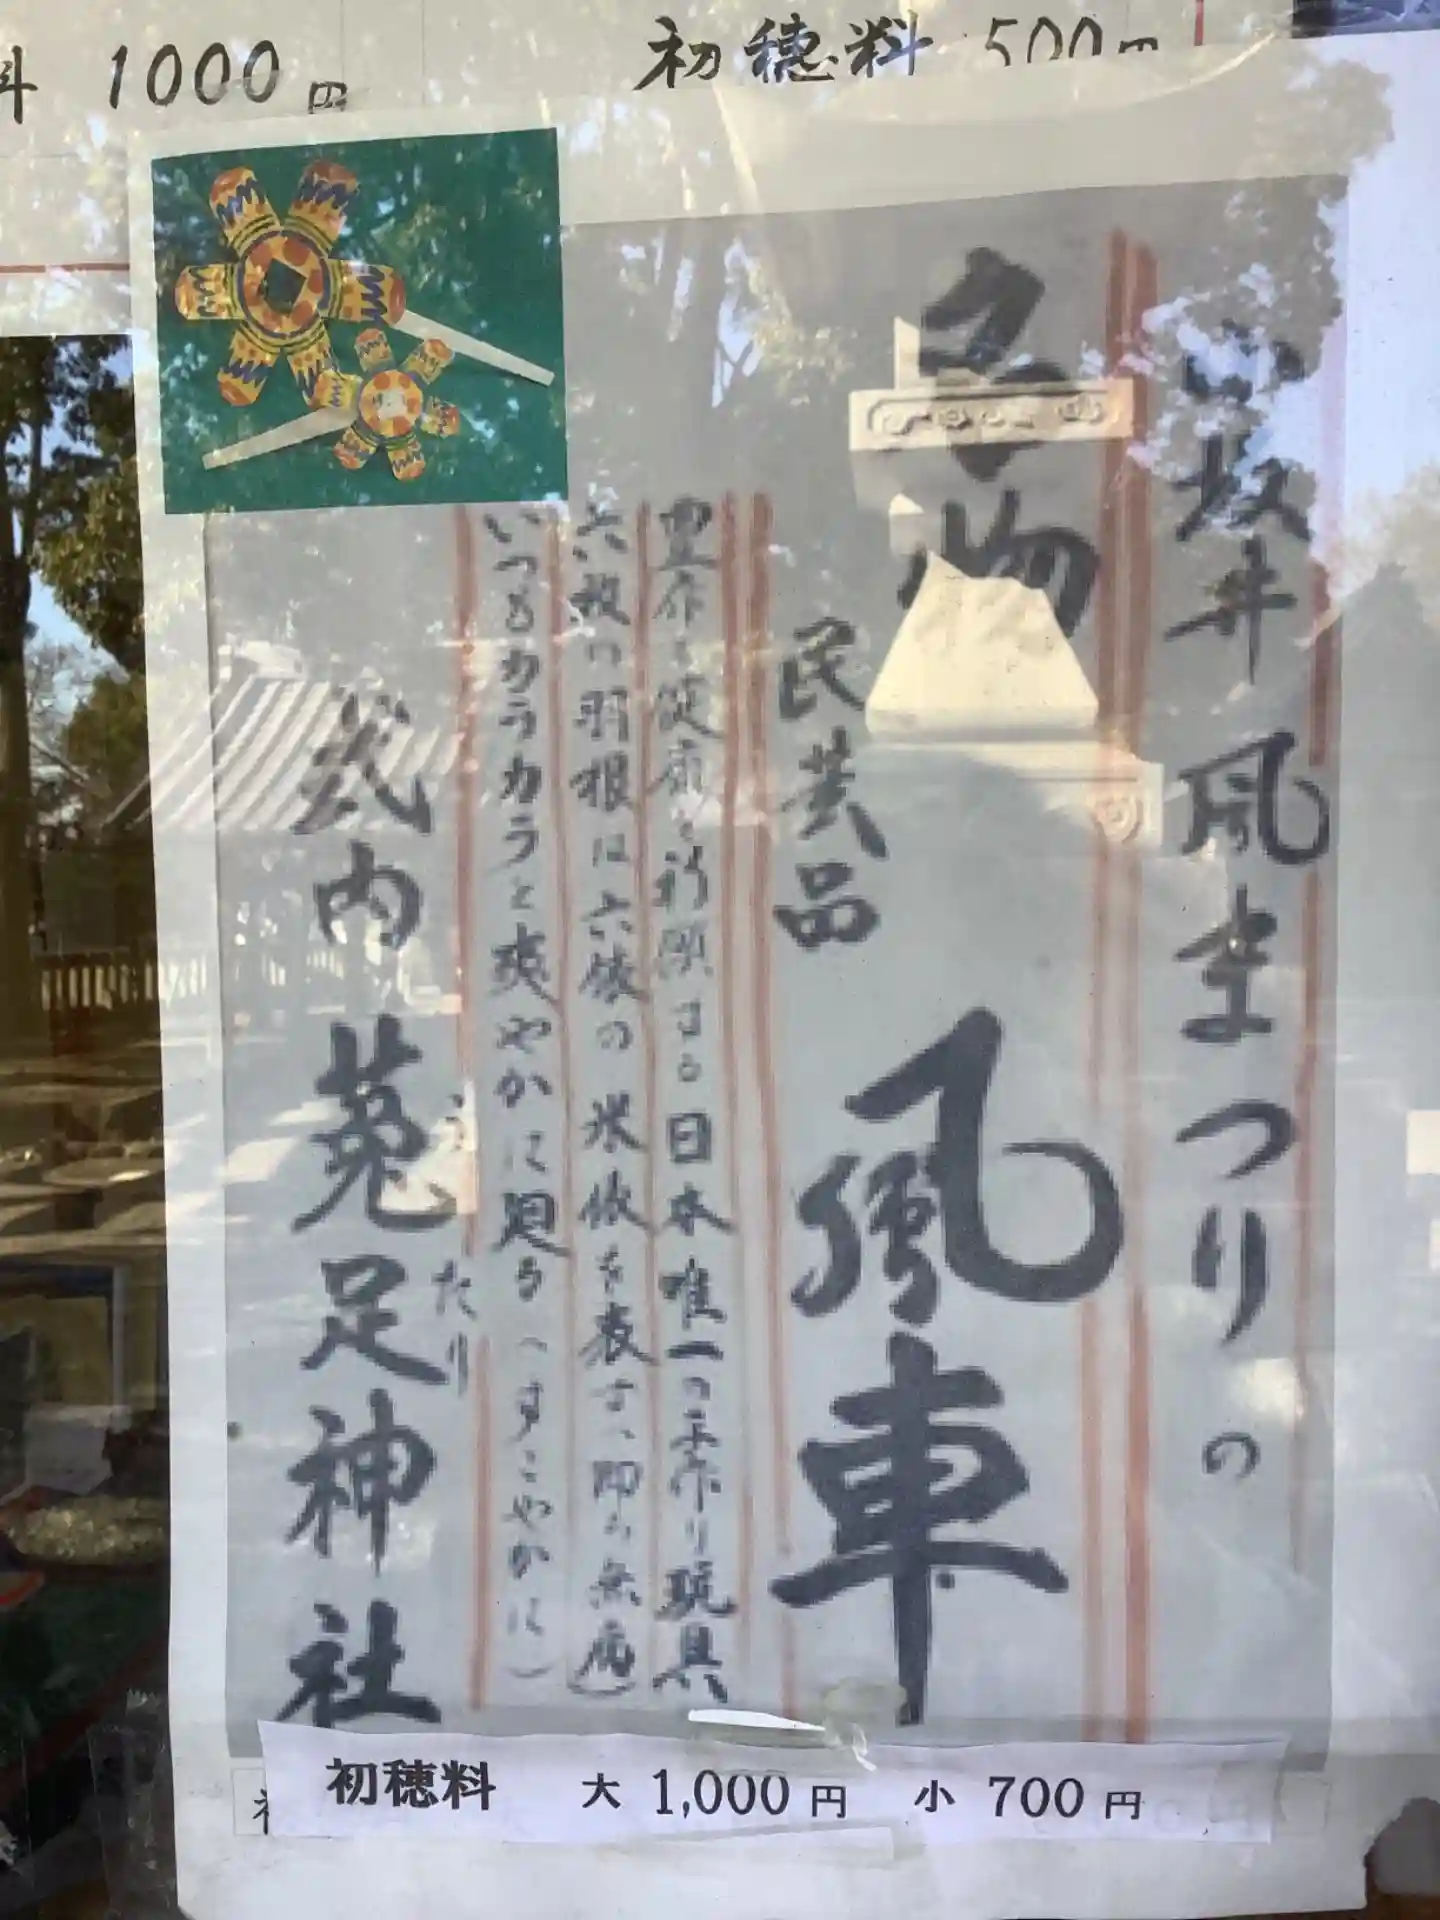 料 1000円
初穂料 500円
小坂井風まつりの
名物
民芸品 風車
豊作と健康を祈願する日本唯一の手作り玩具
六枚の羽根は六俵の米俵を表す、即ち無病
いつもカラカラと爽やかに廻る(すこやかに)
式内 菟足神社
うたり
初穂料 大 1,000円 小 700円